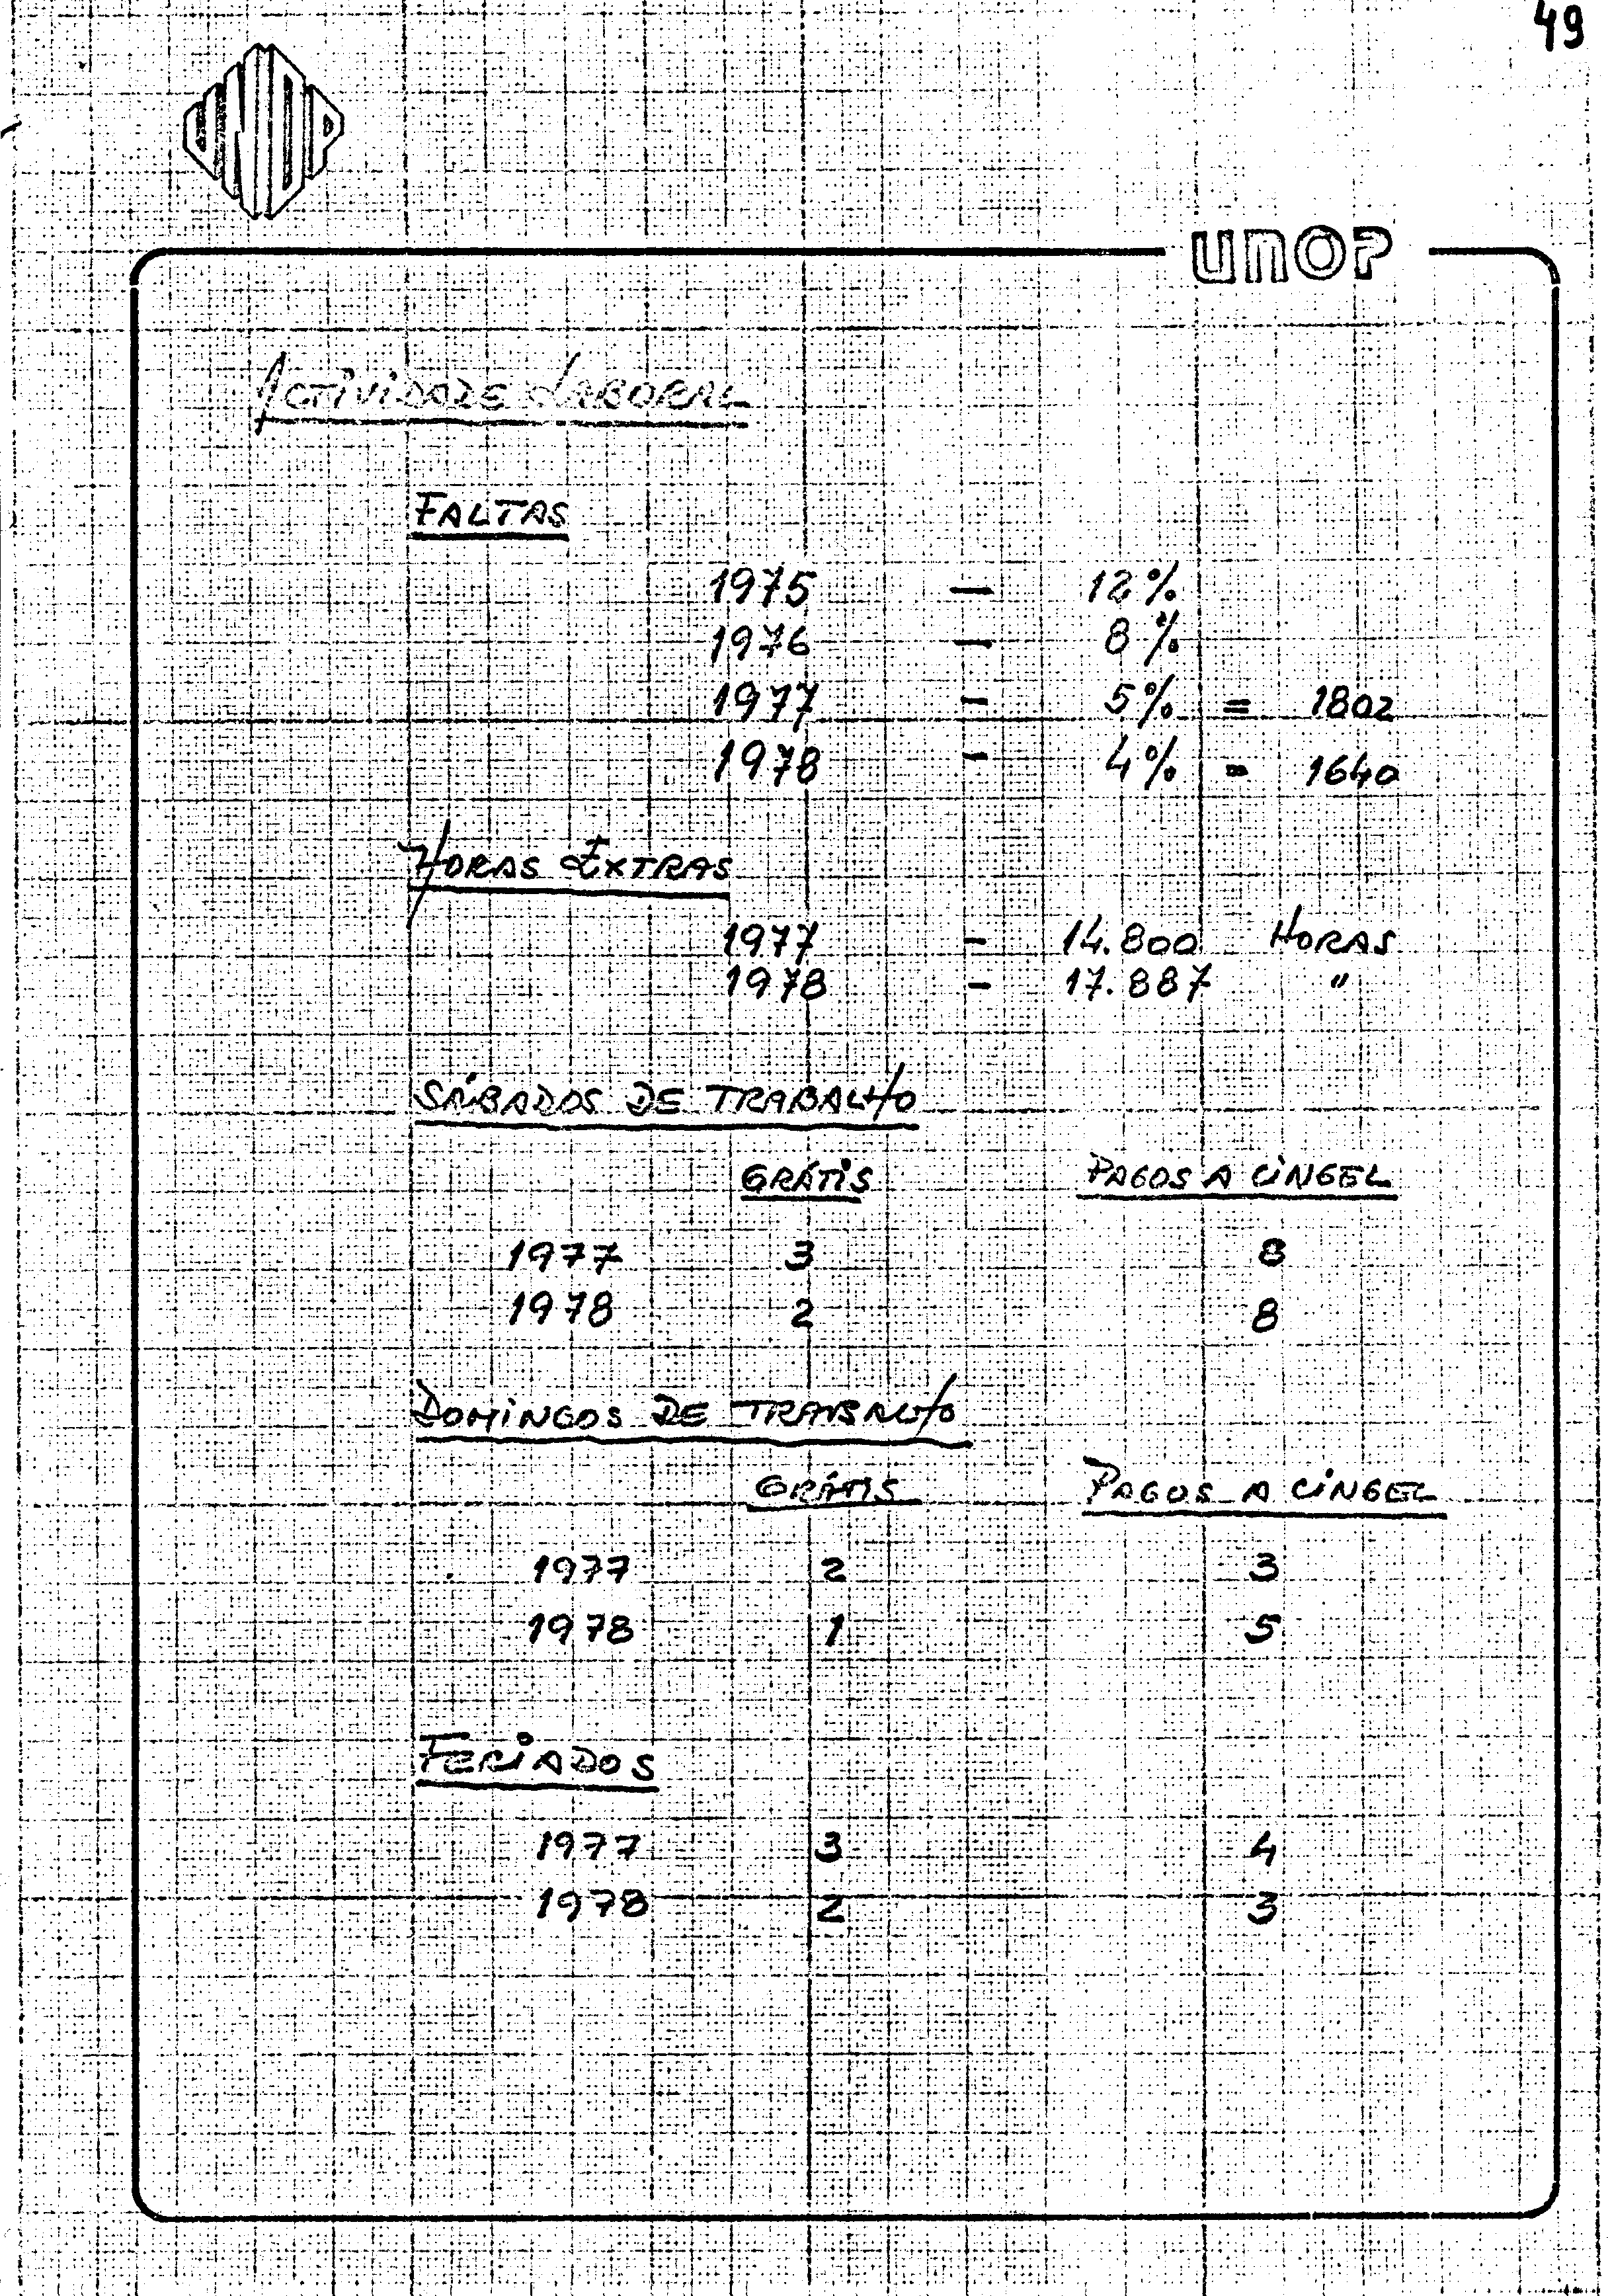 49
UNOP
ACTIVIDADE LABORAL
FALTAS
1975 — 12%
1976 — 8%
1977 - 5% = 1802
1978 - 4% = 1640
HORAS EXTRAS
1977 - 14.800 HORAS
1978 - 17.887 "
SÁBADOS DE TRABALHO
GRÁTIS PAGOS A CINGEL
1977 3 8
1978 2 8
DOMINGOS DE TRABALHO
GRÁTIS PAGOS A CINGEL
1977 2 3
1978 1 5
FERIADOS
1977 3 4
1978 2 3